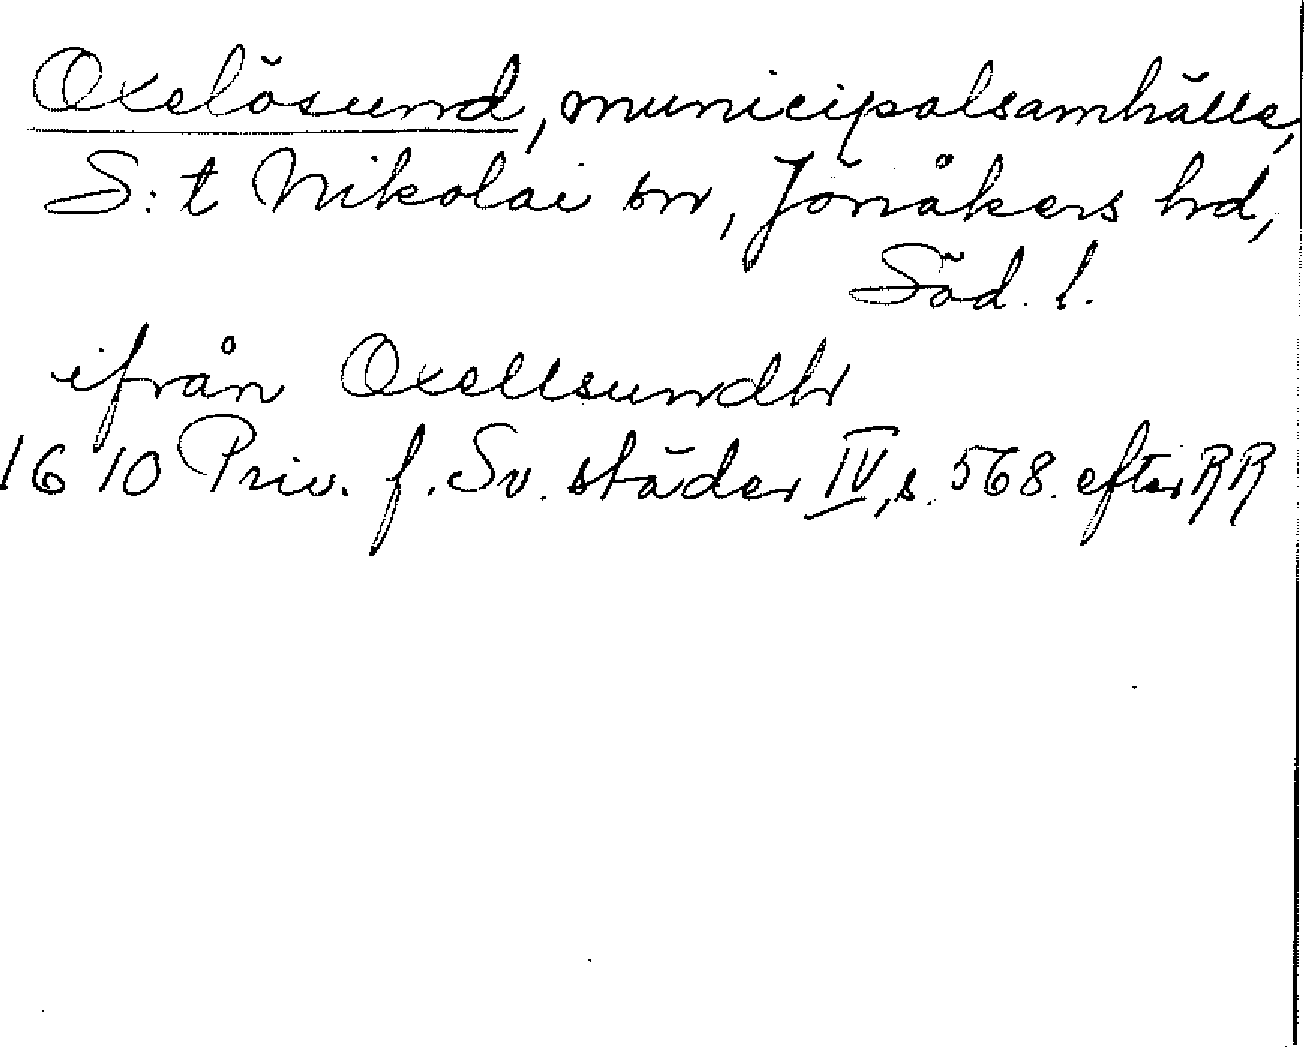 Oxelösund, municipalsamhälle,
S:t Nikolai sn, Jönåkers hd,
Söd. l.
ifrån Oxellsundh
1610 Priv. f. Sv. städer IV, s. 568. efter RR